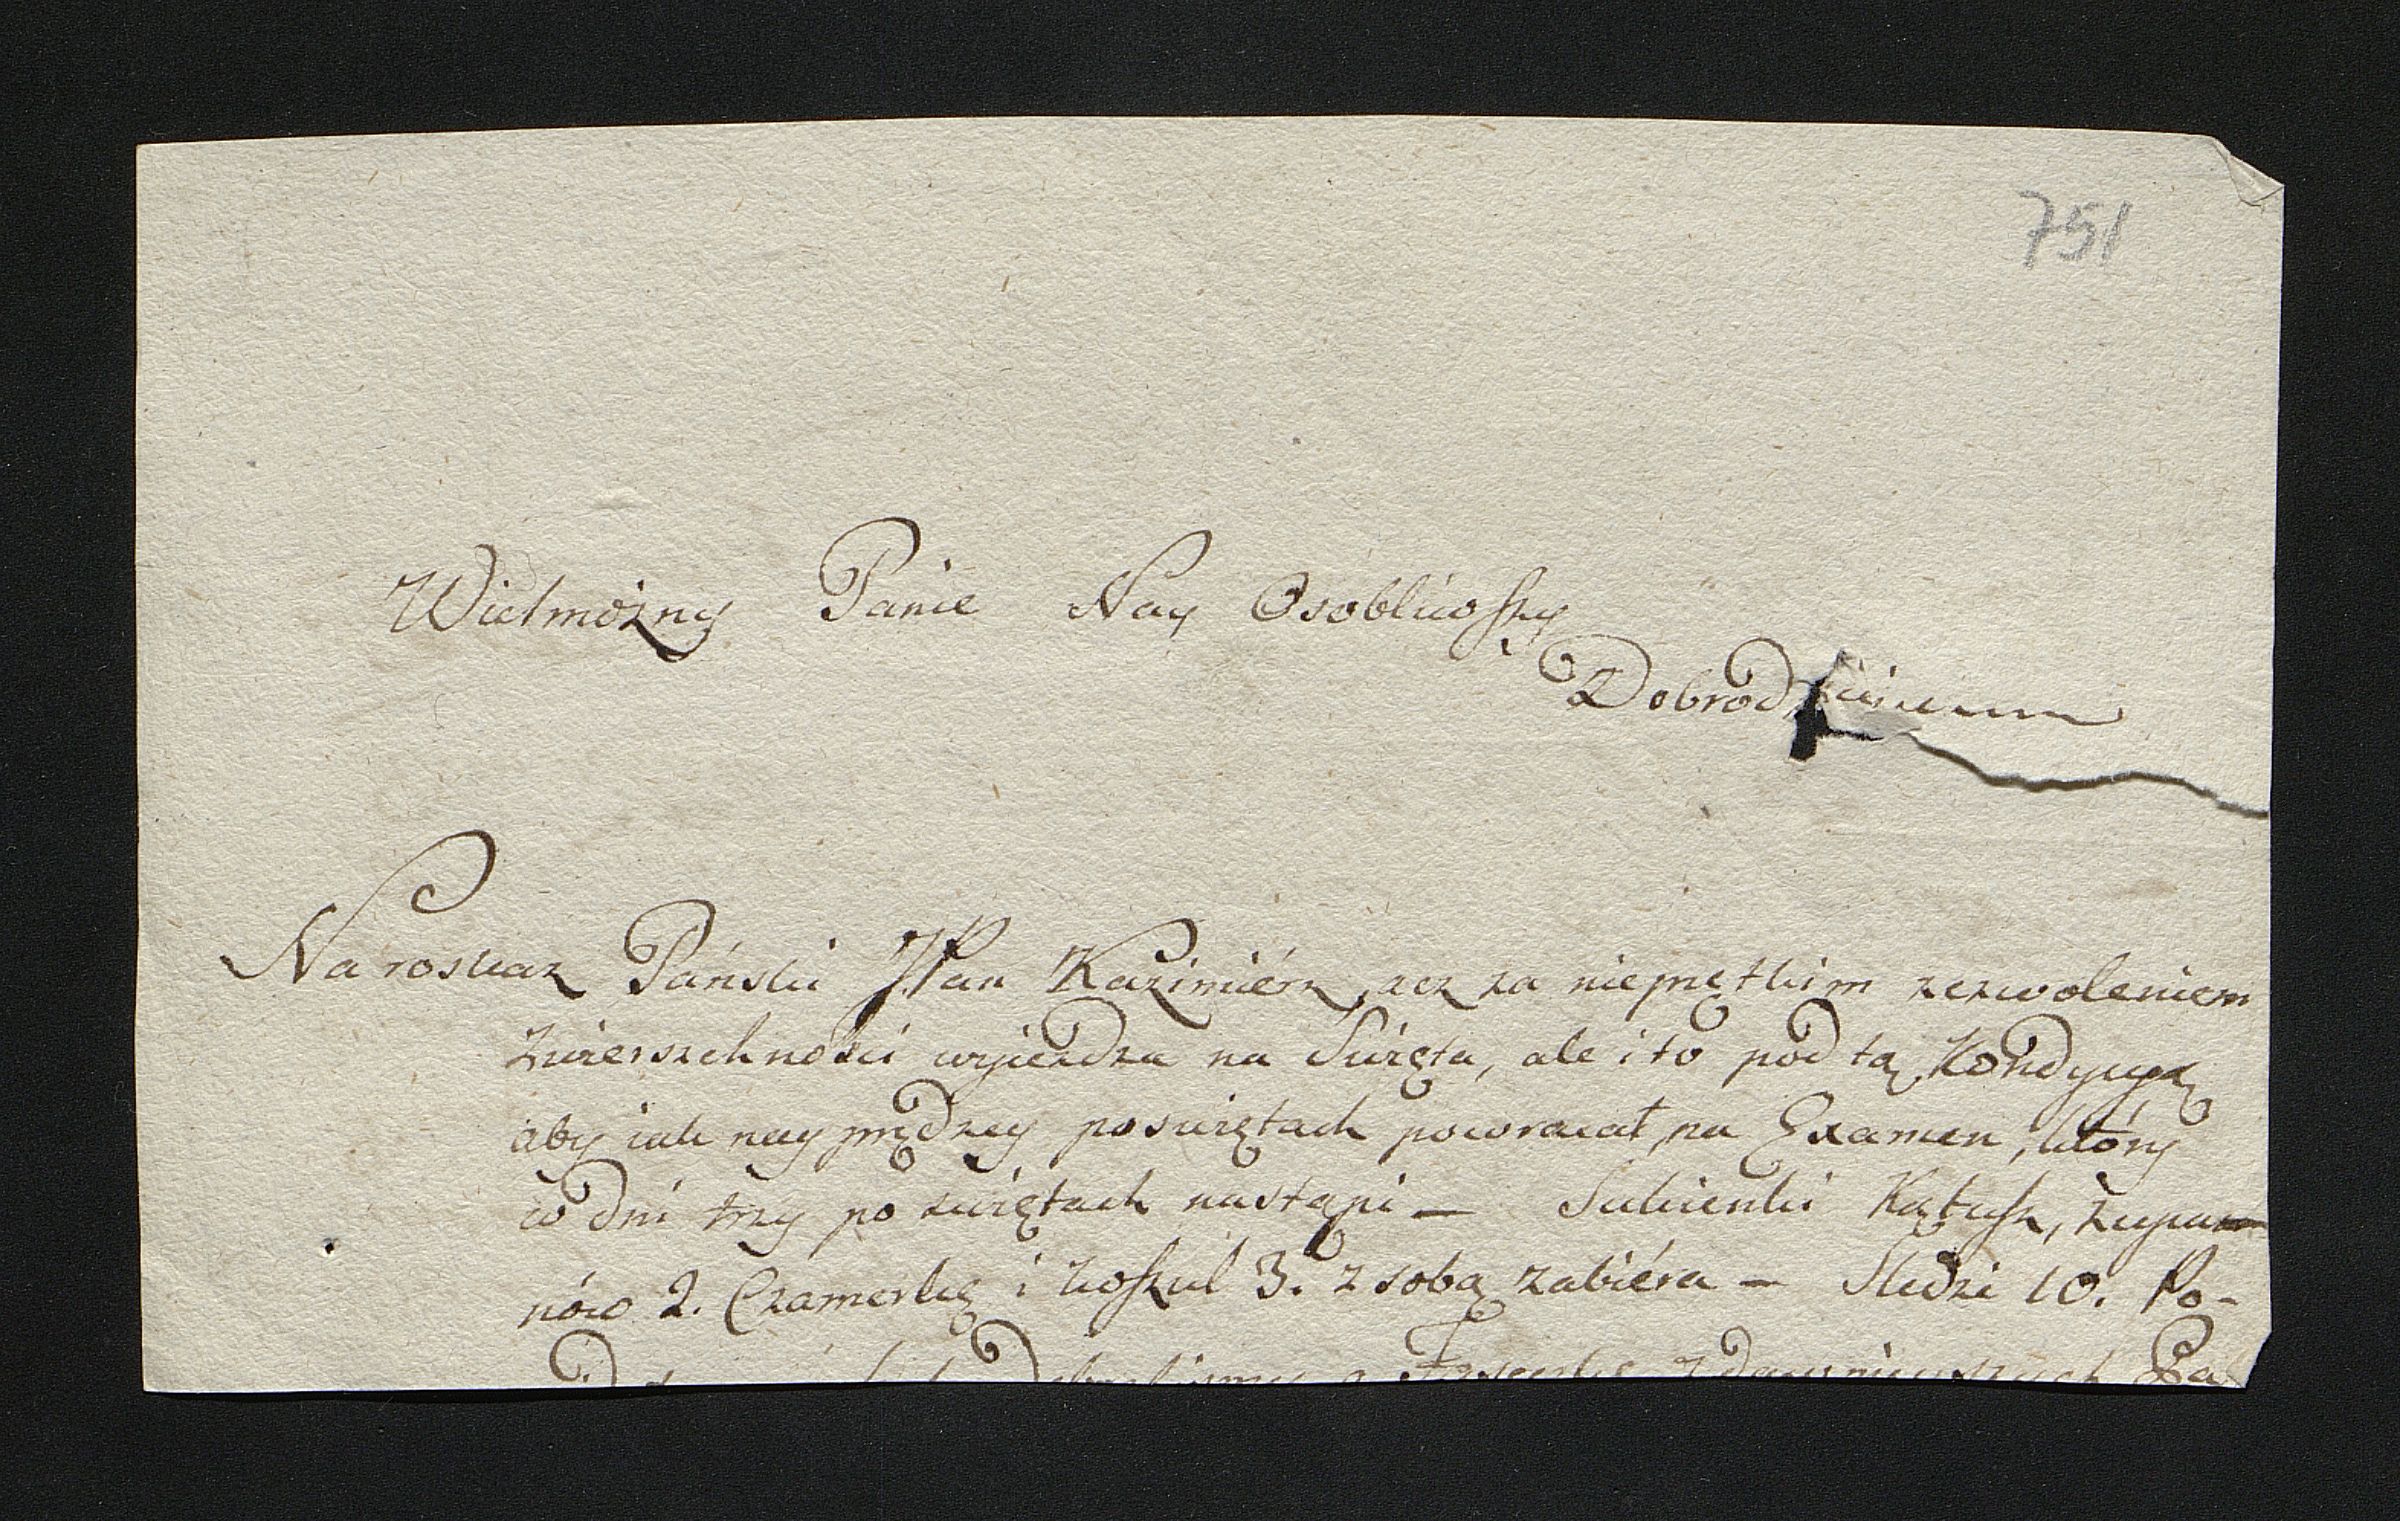 751
Wielmożny Panie Nay Osobliwoszy
Dobrodzieiu
Na roskaz Pański JPan Kazimiérz, acz za nieprętkim zezwoleniem
zwierszchności wyjeżdza na Święta, ale i to pod tą Kondycyą
aby iak nay prędzey poświętach powracał, na Examen, który
w dni trzy po świętach nastąpi — Sukienki Kątusz, żupa-
nów 2. Czamerkę i koszul 3. z sobą zabiéra — Sledzi 10. Po-